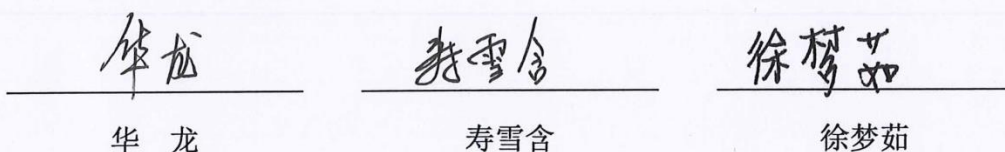 华龙 寿雪含 徐梦茹
华 龙 寿雪含 徐梦茹